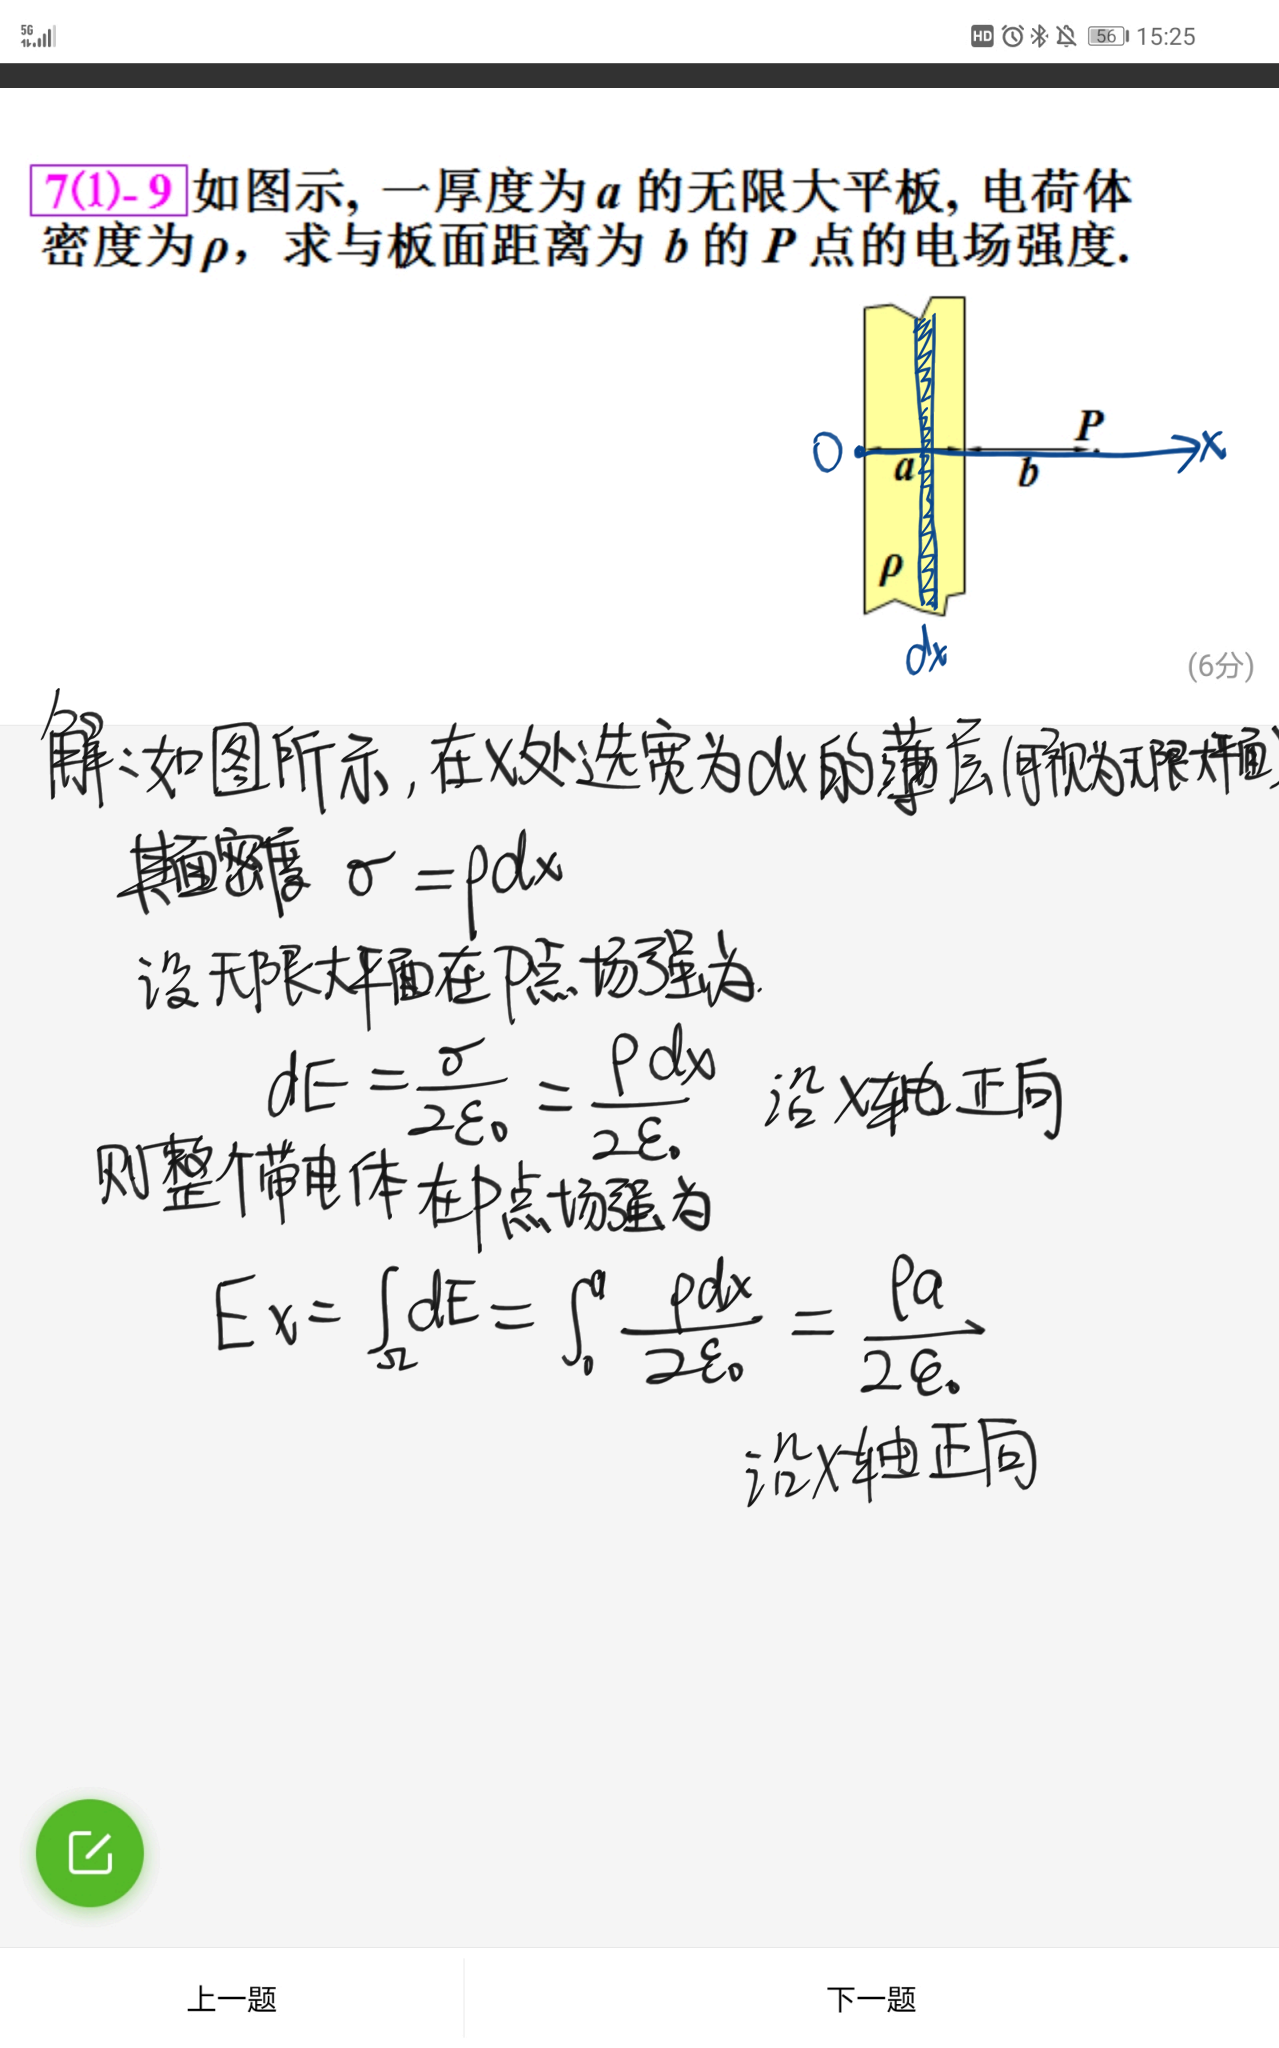 5G
HD 56 15:25
7(1)-9 如图示, 一厚度为 a 的无限大平板, 电荷体
密度为ρ, 求与板面距离为 b 的 P 点的电场强度.
P
O a b x
ρ
dx
(6分)
解:如图所示,在x处选宽为dx的薄层(可视为无限大平面)
其面密度 σ=ρdx
设无限大平面在P点场强为.
dE = σ/2ε₀ = ρdx/2ε₀ 沿x轴正向
则整个带电体在P点场强为
Ex = ∫_Ω dE = ∫₀^a ρdx/2ε₀ = ρa/2ε₀
沿x轴正向
上一题 下一题